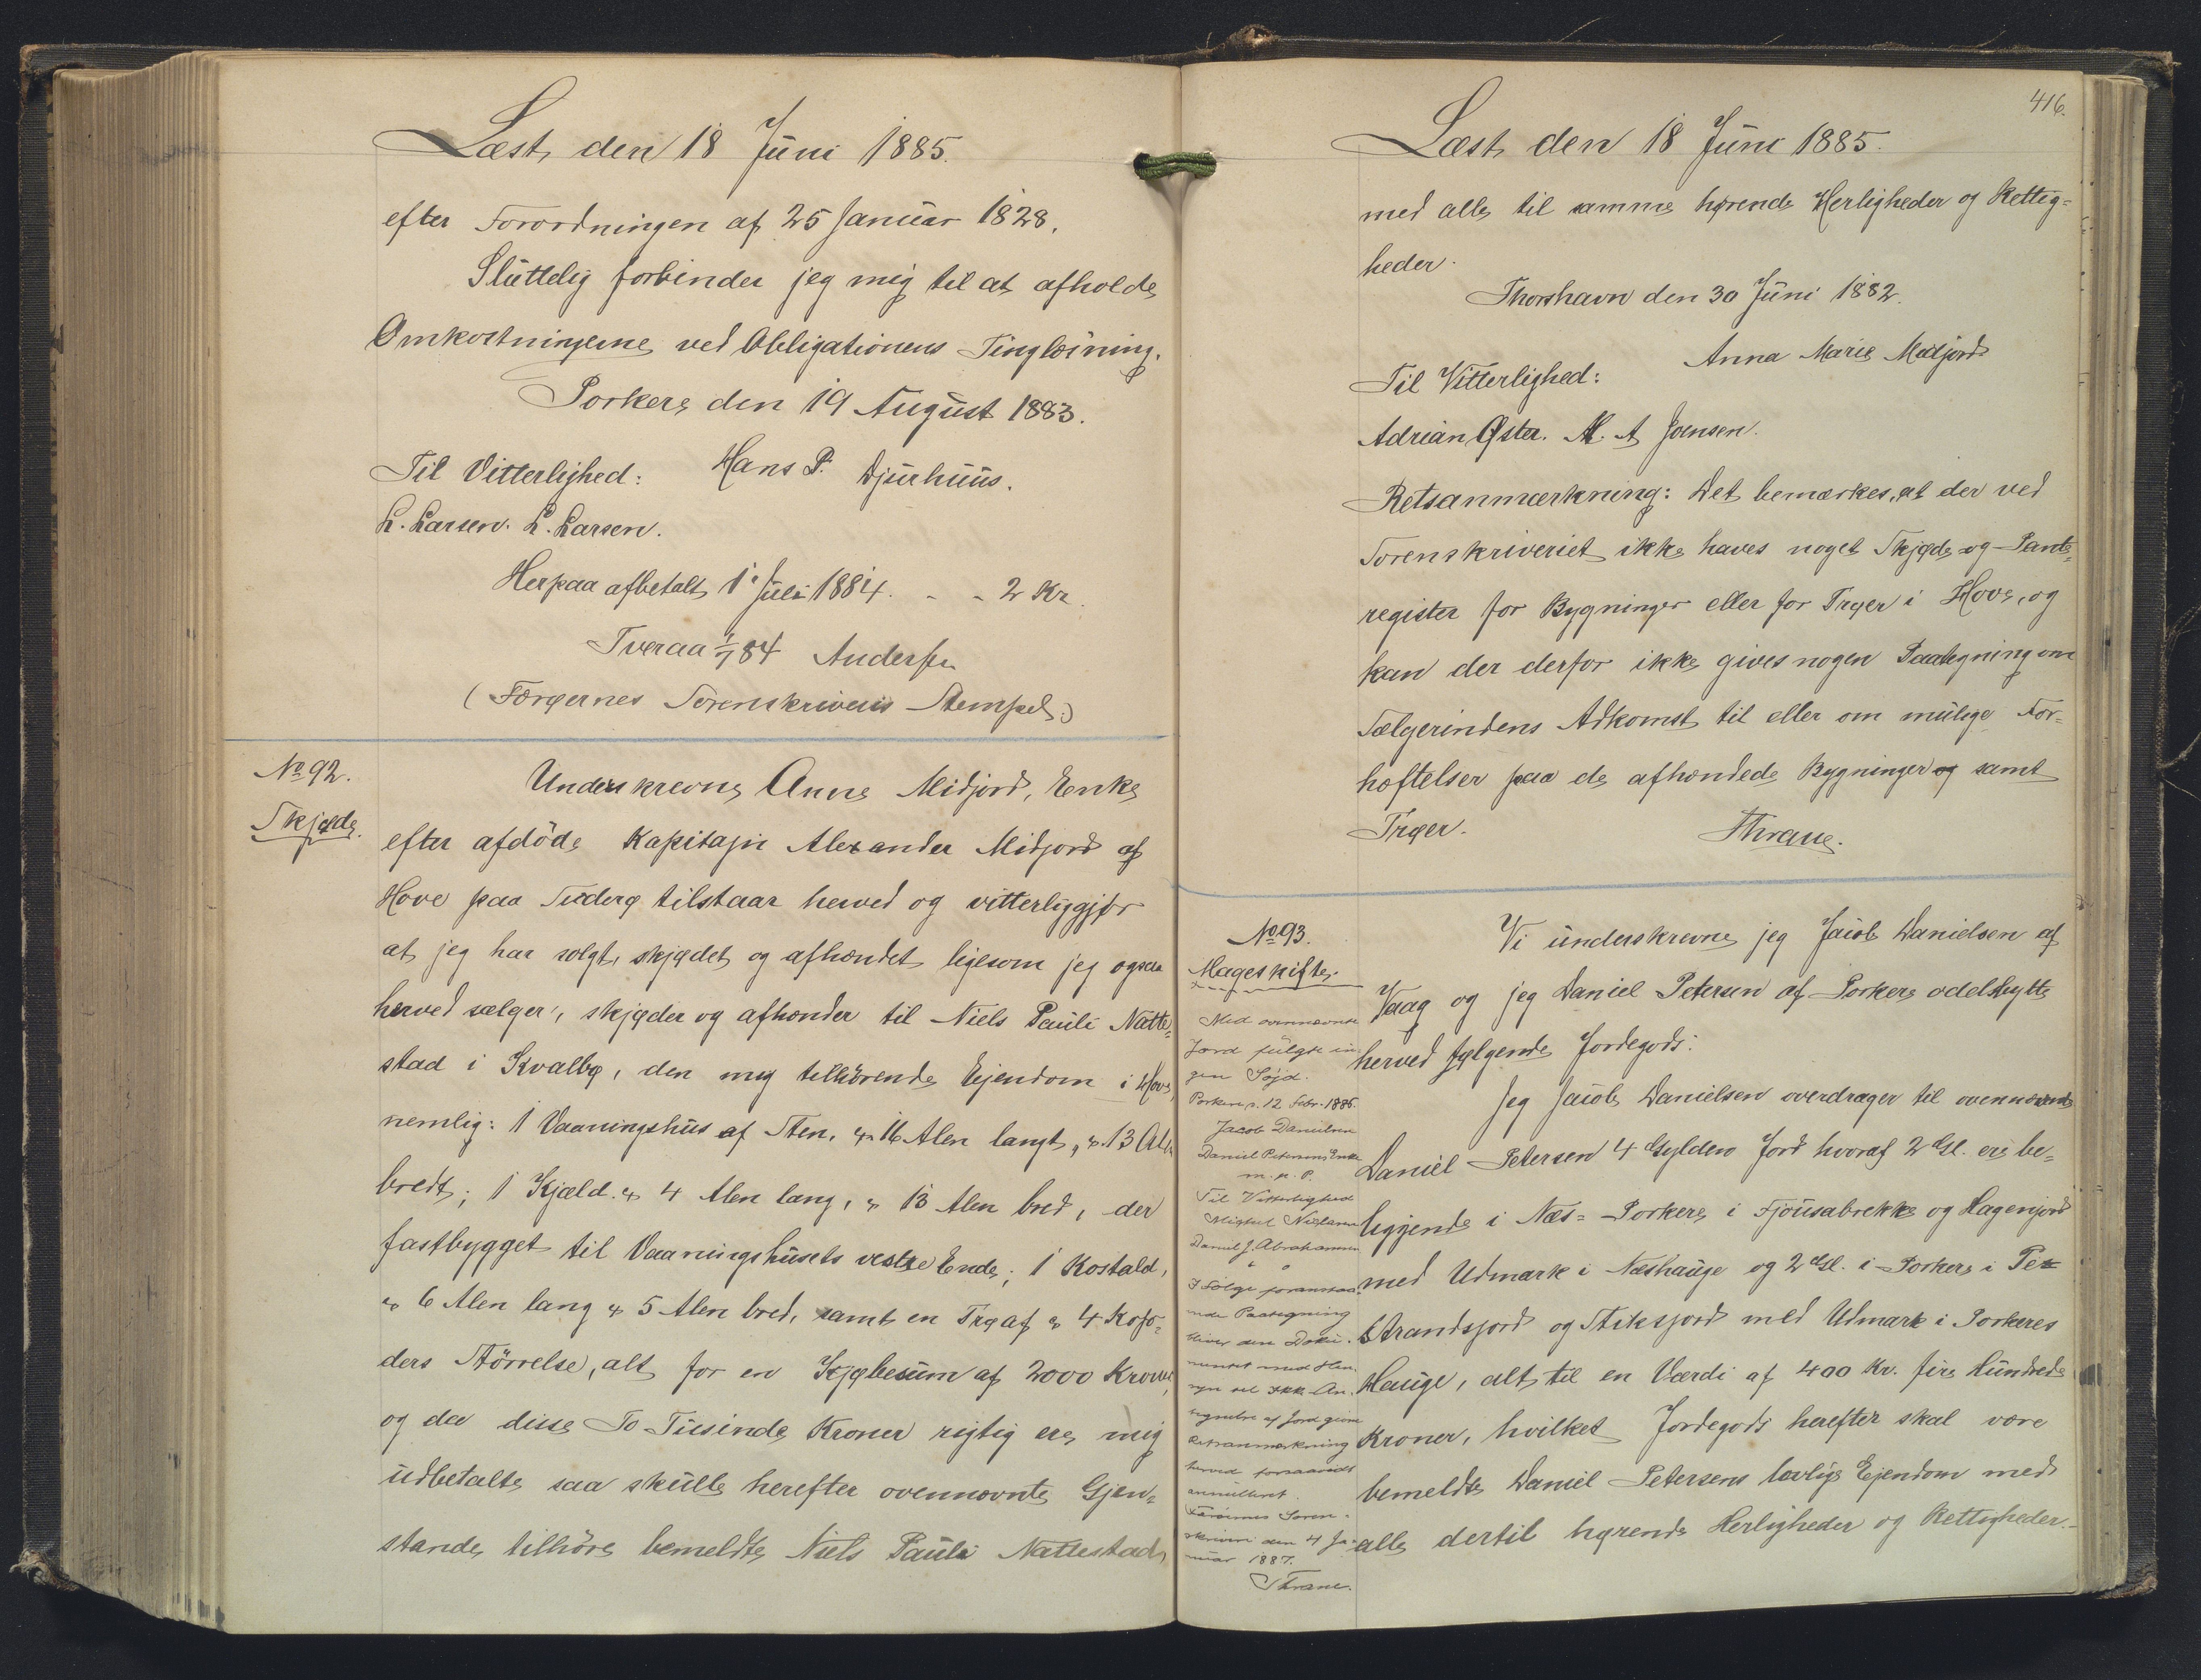 Læst den 18 Juni 1885.
efter Forordningen af 25 Januar 1828.
Sluttelig forbinder jeg mig til at afholde
Omkostningerne ved Obligationens Tinglæsning.
Porkere den 19 August 1883.
Til Vitterlighed: Hans P. Djurhuus.
L. Larsen. L. Larsen.
Herpaa afbetalt 1' Juli 1884. - - 2 Kr.
Tveraa 1/7 84 Andersen
(Færøernes Sorenskriveris Stempel.)
No 92.
Skjøde.
Underskrevne Anne Midjord, Enke
efter afdöde Kapitajn Alexander Midjord af
Hove paa Suderø tilstaar herved og vitterliggjør
at jeg har solgt, skjødet og afhændet ligesom jeg ogsaa
herved sælger, skjøder og afhænder til Niels Pauli Natte-
stad i Kvalbø, den mig tilhörende Ejendom i Hove,
nemlig: 1 Vaaningshus af Sten, 16 Alen langt, 13 Alen
bredt; 1 Kjæld. 4 Alen lang, 13 Alen bred, der
fastbygget til Vaaningshusets vestre Ende; 1 Kostald,
6 Alen lang 5 Alen bred, samt en Trø af 4 Kofo-
ders Störrelse, alt for en Kjøbesum af 2000 Kroner,
og da disse To Tusinde Kroner rigtig ere mig
udbetalte saa skulle herefter ovennævnte Gjen-
stande tilhöre bemeldte Niels Pauli Nattestad
416.
Læst den 18 Juni 1885.
med alle til samme hørende Herligheder og Rettig-
heder.
Thorshavn den 30 Juni 1882.
Anna Marie Midjord
Til Vitterlighed:
Adrian Øster. M. A Joensen.
Retsanmærkning: Det bemærkes, at der ved
Sorenskriveriet ikke haves noget Skjøde og Pante-
register for Bygninger eller for Trøer i Hove, og
kan der derfor ikke gives nogen Paategning om
Sælgerindens Adkomst til eller om mulige For-
hæftelser paa de afhændede Bygninger og samt
Trøer. Thrane.
No 93.
Mageskifte.
Med ovennævnte
Jord fulgte in-
gen Søjd.
Porkere d. 12 Febr. 1886.
Jacob Danielsen
Daniel Petersens Enke
m. p. P.
Til Vitterlighed
Michel Nielsen
Daniel J. Abrahamsen
I Følge foranstaa-
ende Paategning
bliver den Doku-
mentet med Hen-
syn til Skk. An-
sigtelse af Jord givne
Retsanmærkning
herved forsaavidt
annulleret.
Færøernes Soren-
skriveri den 4 Ja-
nuar 1887.
Thrane.
Vi underskrevne jeg Jacob Danielsen af
Vaag og jeg Daniel Petersen af Porkere odelsbytte
herved følgende Jordegods:
Jeg Jacob Danielsen overdrager til ovennævnte
Daniel Petersen 4 Gylden Jord hvoraf 2 Gl. ere be-
liggende i Næs-Porkere i Fjousabrekke og Hagenjord
med Udmark i Næshauge og 2 Gl. i Porkere i Pez
Strandsjord og Stiksjord med Udmark i Porkeres
Hauge, alt til en Værdi af 400 Kr. fire Hundrede
Kroner, hvilket Jordegods herefter skal være
bemeldte Daniel Petersens lovlige Ejendom med
alle dertil hørende Herligheder og Rettigheder.-